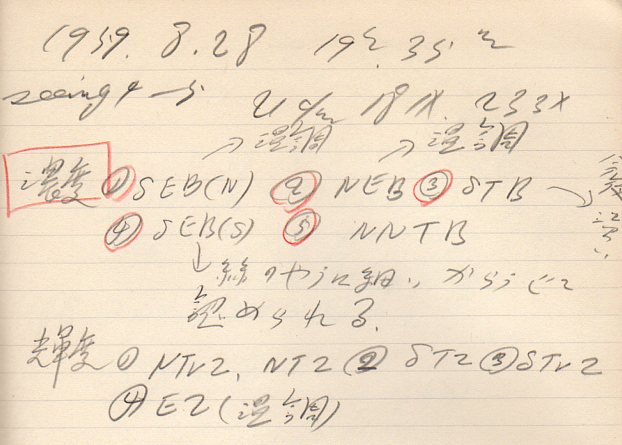 1959. 8.28 19h 35m
seeing 4-5
21cm 181X. 233X
→湿調 →湿調
濃度 ① SEB(N) ② NEB ③ STB →
④ SEB(S) ⑤ NNTB
↓
絲のやうに細い、からうじて
認められる.
輝度 ① NTrZ, NTZ ② STZ ③ STrZ
④ EZ (湿調)